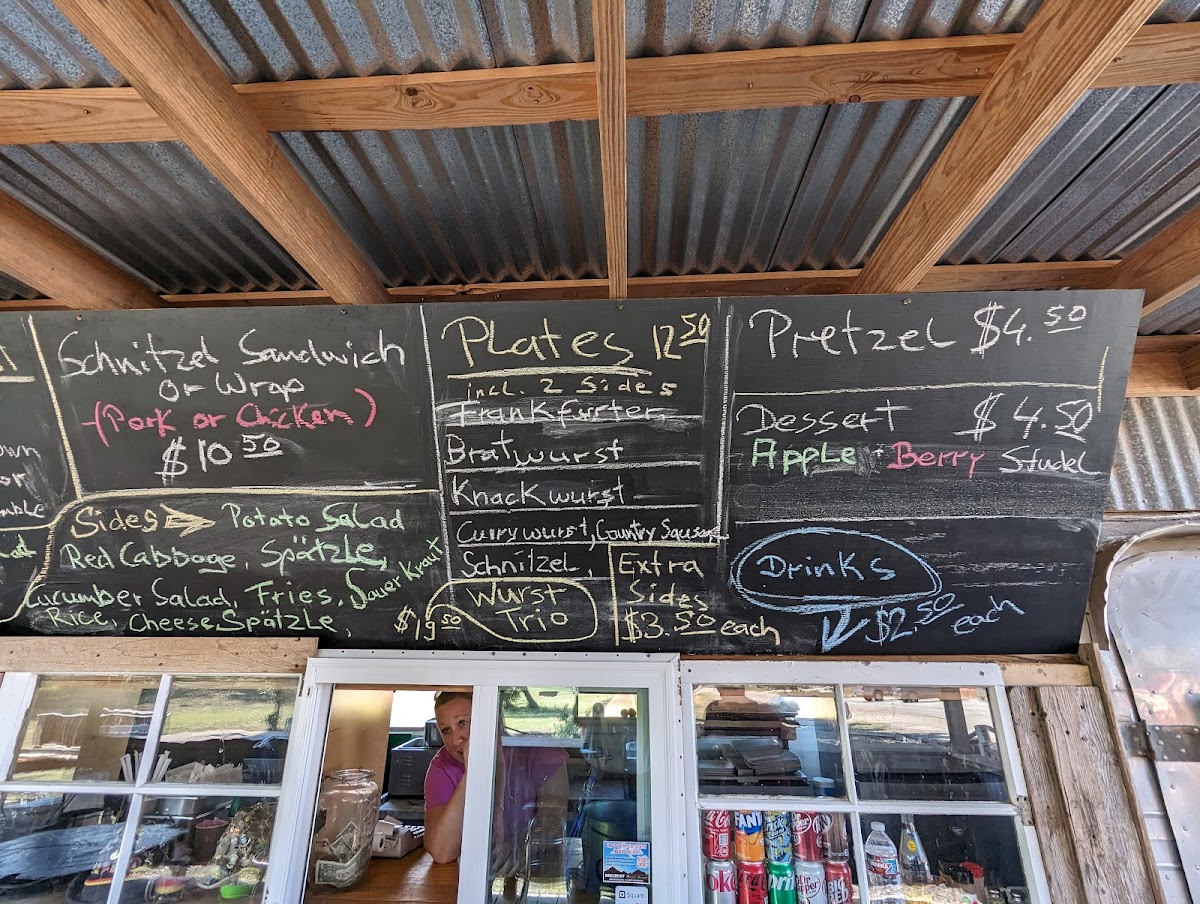 Schnitzel Sandwich
or Wrap
(Pork or Chicken)
$10.50
Sides Potato Salad
Red Cabbage, Spätzle,
Cucumber Salad, Fries, Sauerkraut
Rice, Cheese Spätzle,
Plates 12.50
incl. 2 Sides
Frankfurter
Bratwurst
Knackwurst
Currywurst, Country Sausage
Schnitzel,
Wurst
Trio
$19.50
Extra
Sides
$3.50 each
Pretzel $4.50
Dessert $4.50
Apple + Berry Studel
Drinks
$2.50 each
Dr Pepper
Square